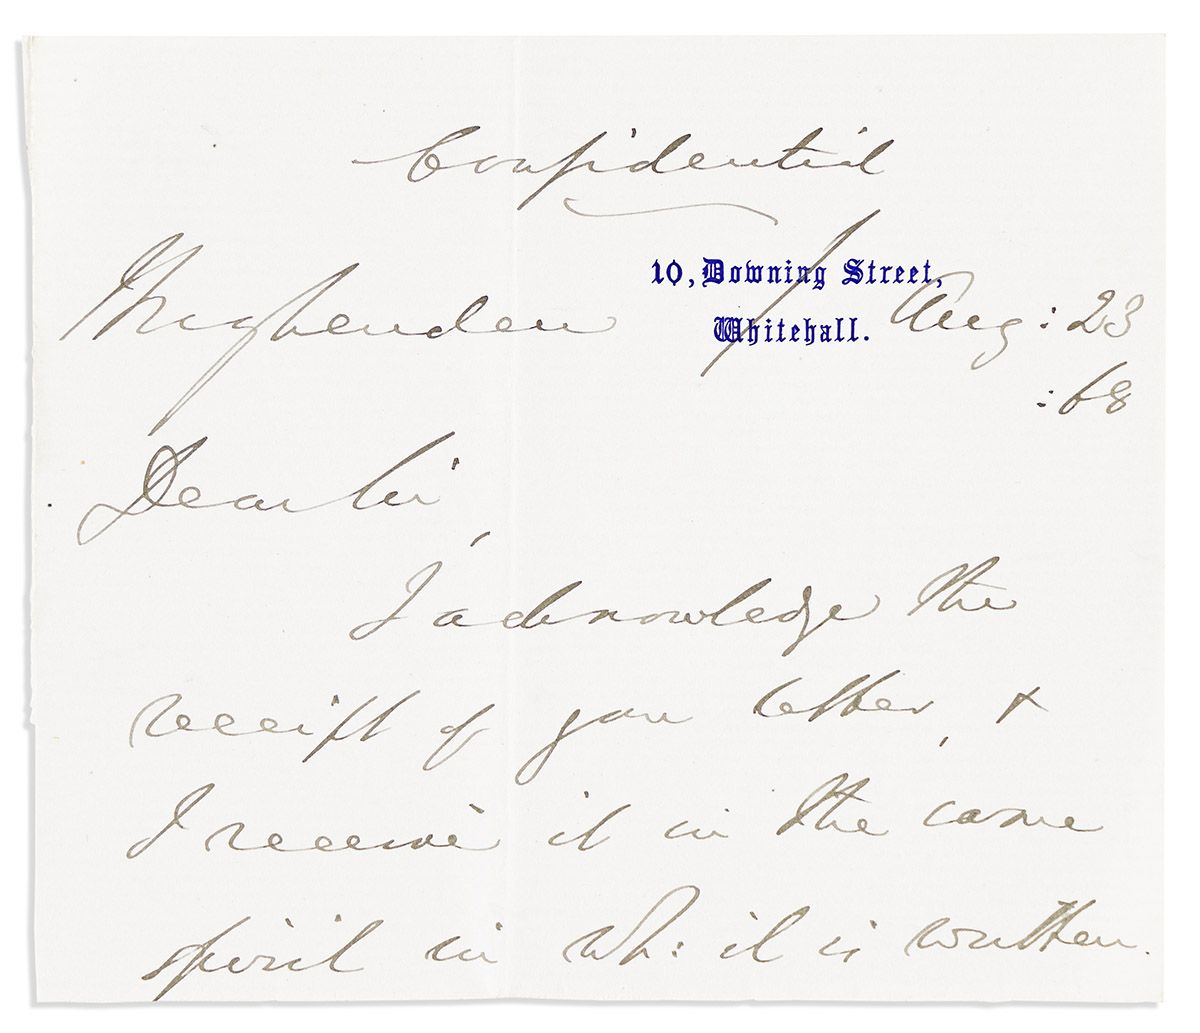 Confidential
10, Downing Street,
Whitehall.
Hughenden / Aug: 23
:68
Dear Sir,
I acknowledge the
receipt of your letter, &
I receive it in the same
spirit in wh: it is written.